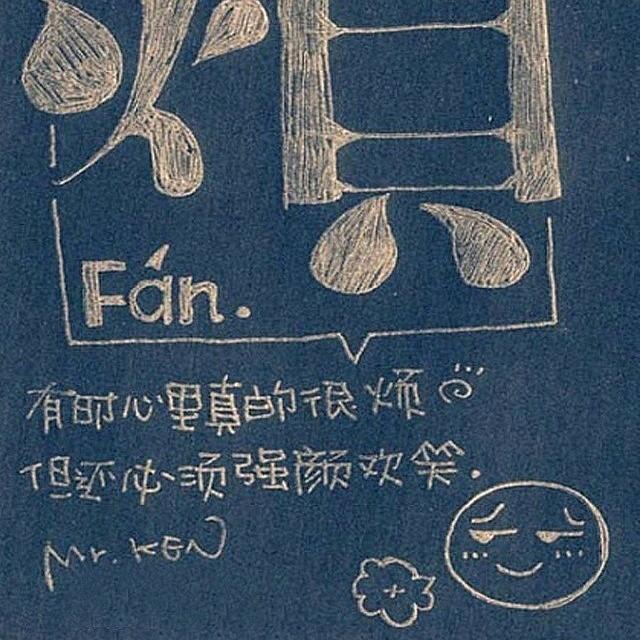 烦
Fán.
有时心里真的很烦
但还必须强颜欢笑.
Mr. KEN